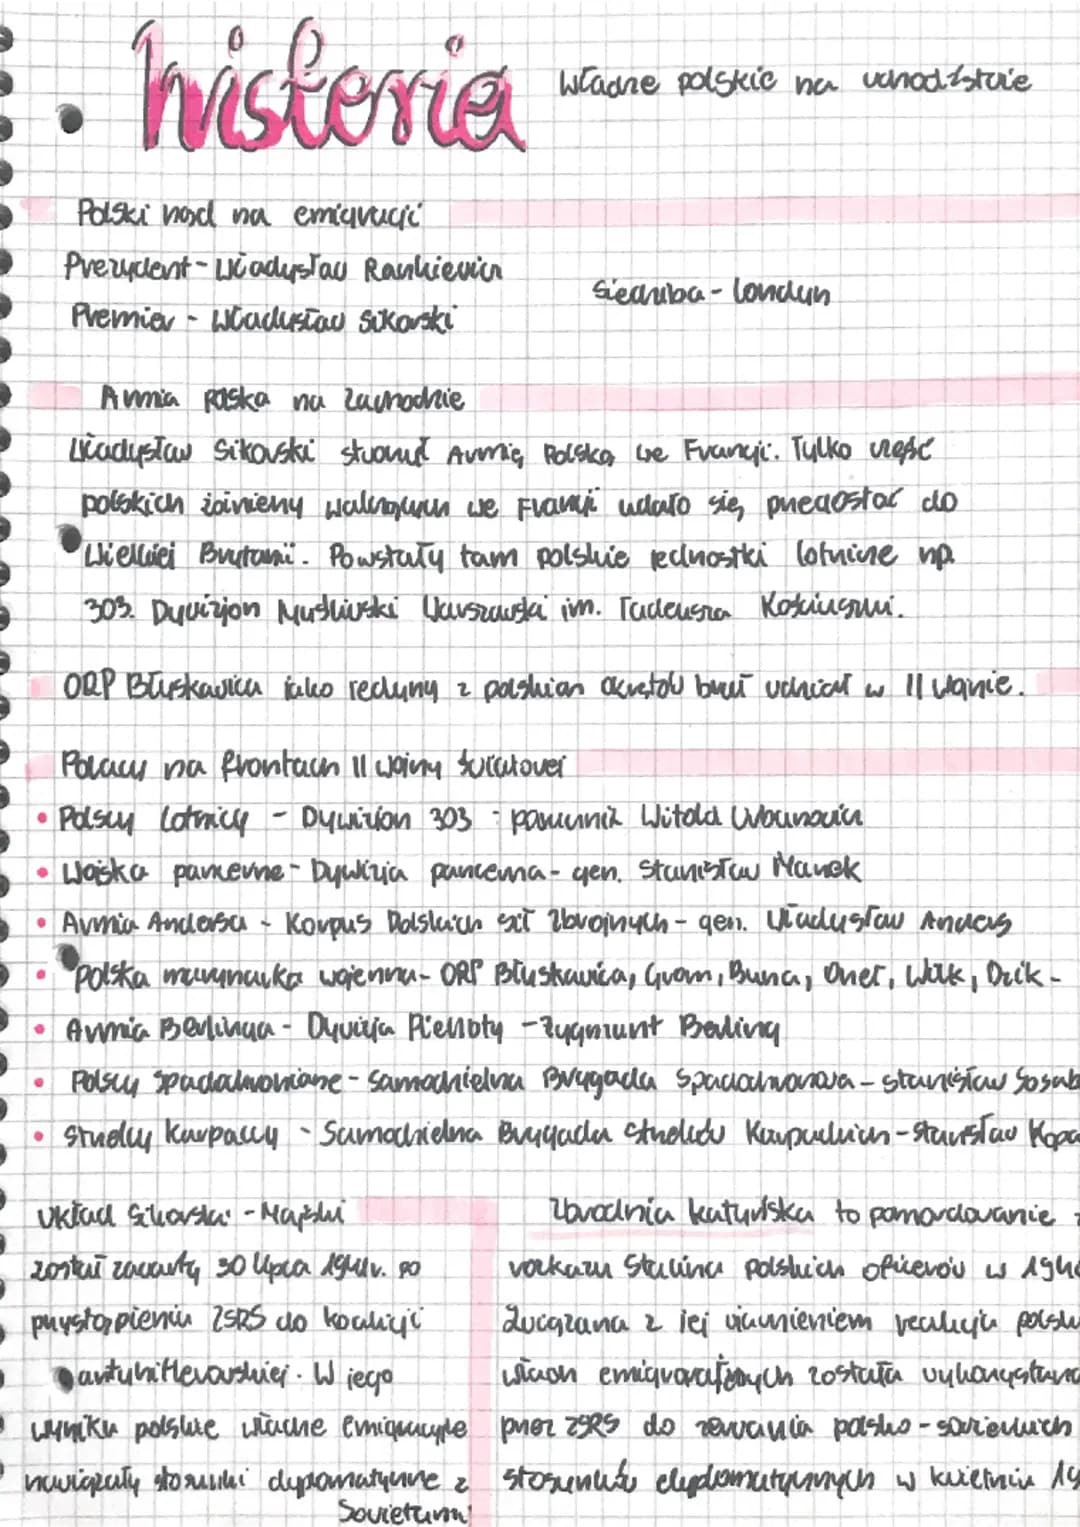 historia
Władze polskie na uchodźstwie
Polski rząd na emigracji
Prezydent - Władysław Raczkiewicz
siedziba - londyn
Premier - Władysław Sikorski
Armia Polska na Zachodzie
Władysław Sikorski stworzył Armię Polską we Francji. Tylko część
polskich żołnierzy walczących we Francji udało się przedostać do
Wielkiej Brytanii. Powstały tam polskie jednostki lotnicze np.
303. Dywizjon Myśliwski Warszawski im. Tadeusza Kościuszki.
ORP Błyskawica jako jedyny z polskich okrętów brał udział w II wojnie.
Polacy na frontach II wojny światowej
• Polscy lotnicy - Dywizjon 303 - porucznik Witold Urbanowicz
• Wojska pancerne - Dywizja pancerna - gen. Stanisław Maczek
• Armia Andersa - Korpus Polskich sił Zbrojnych - gen. Władysław Anders
• Polska marynarka wojenna - ORP Błyskawica, Grom, Burza, Orzeł, Wilk, Dzik -
• Armia Berlinga - Dywizja Piechoty - Zygmunt Berling
• Polscy spadochroniarze - Samodzielna Brygada Spadochronowa - Stanisław Sosab
• Strzelcy Karpaccy - Samodzielna Brygada Strzelców Karpackich - Stanisław Kopa
Układ Sikorski - Majski
został zawarty 30 lipca 1941r. po
przystąpieniu ZSRS do koalicji
antyhitlerowskiej. W jego
wyniku polskie władze emigracyjne
nawiązały stosunki dyplomatyczne z
Sovietami
Zbrodnia katyńska to pomordowanie z
rozkazu Stalina polskich oficerów w 194
Związana z jej ujawnieniem reakcja polski
władz emigracyjnych została wykorzystana
przez ZSRS do zerwania polsko - sowieckich
stosunków dyplomatycznych w kwietniu 19